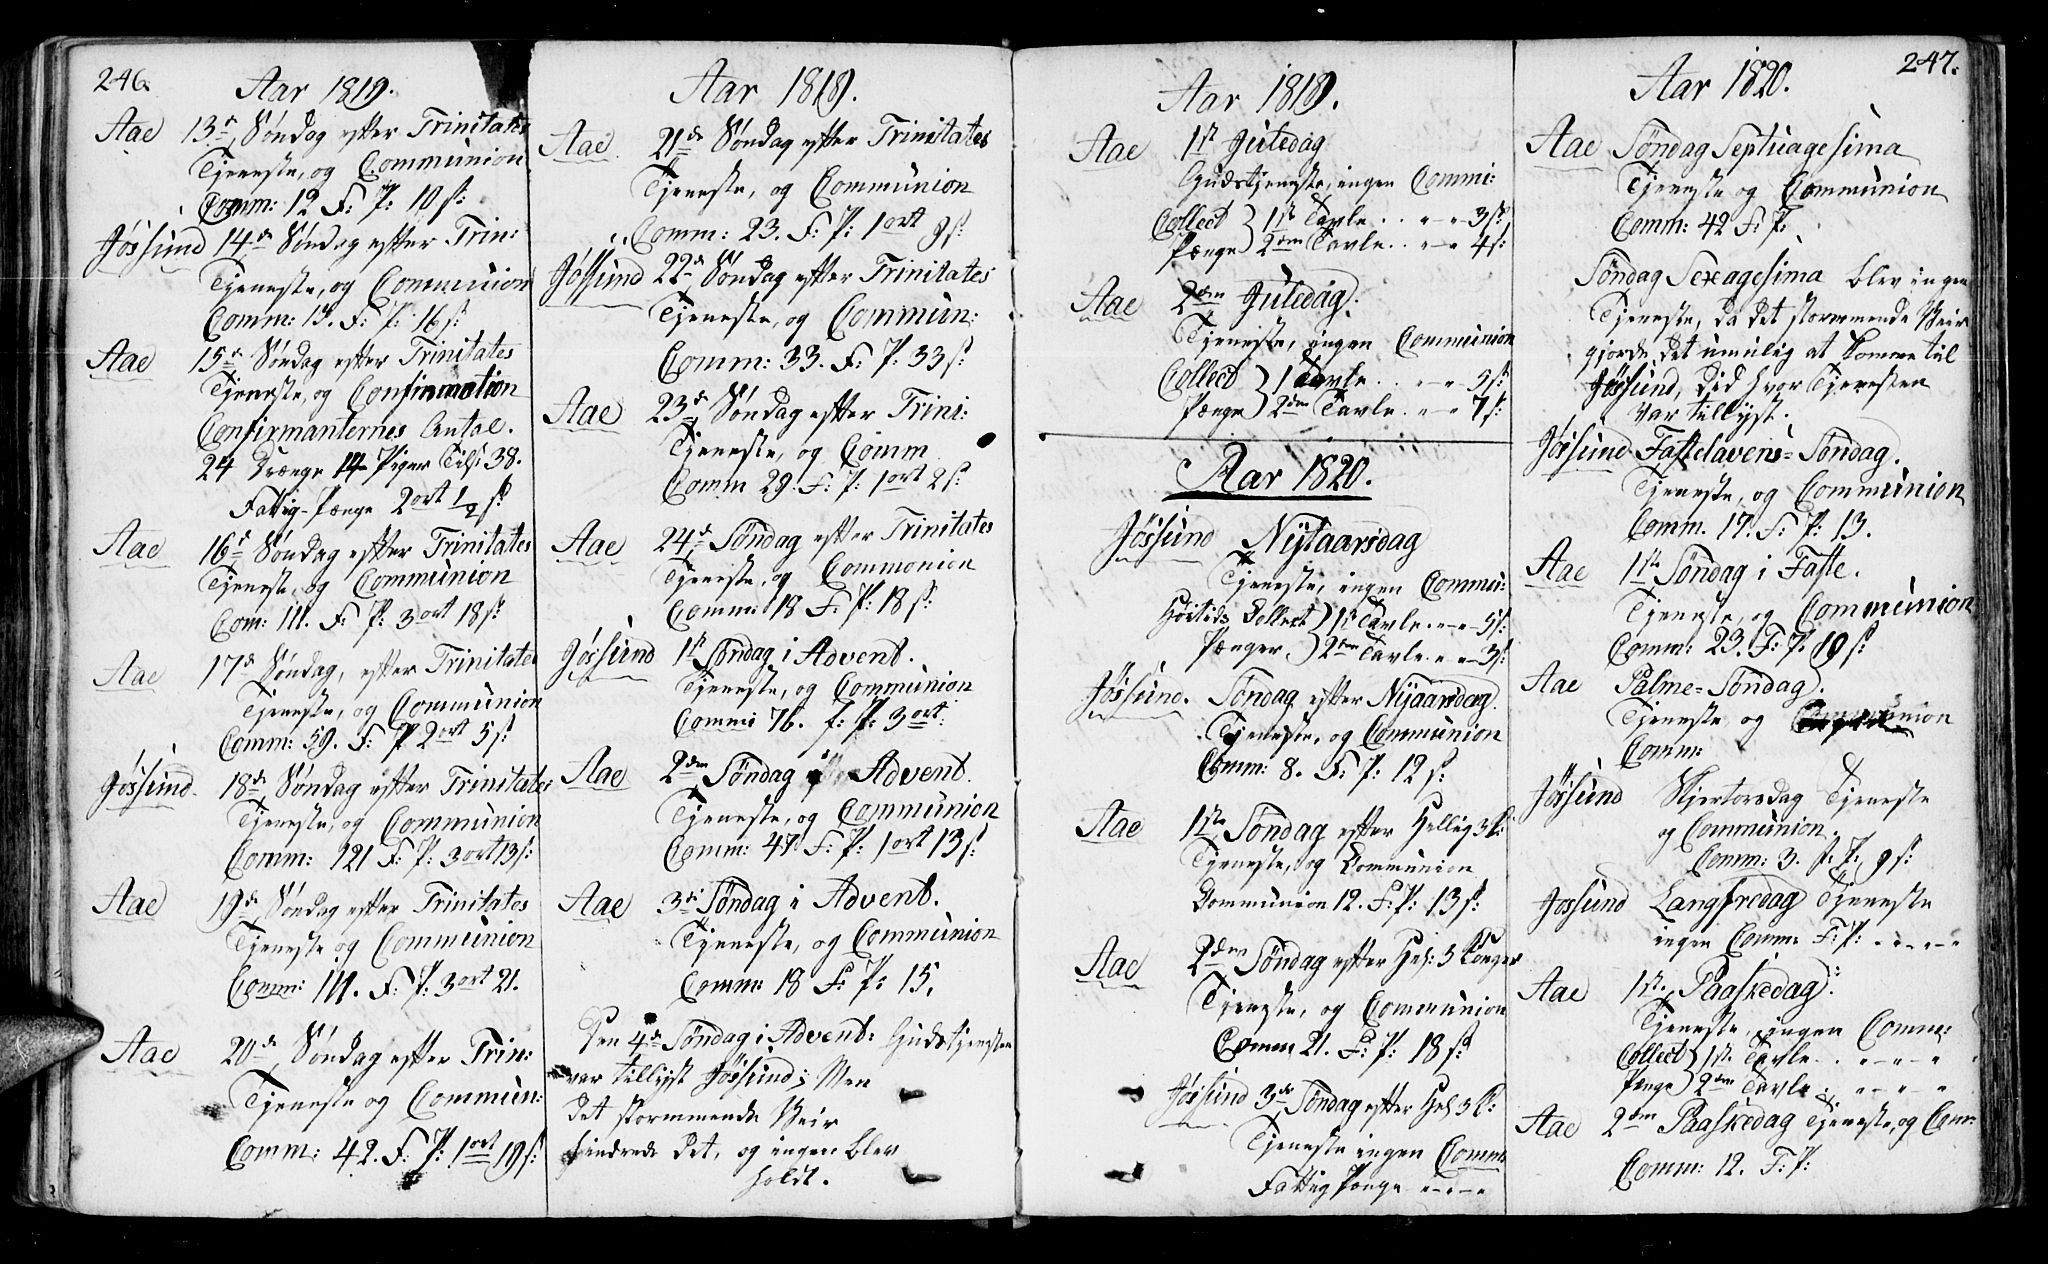 246.
Aar 1819.
Aae 13de Søndag efter Trinitates
Tjeneste, og Communion
Comm: 12 F: P: 10 s:
Jøssund 14de Søndag efter Trin:
Tjeneste, og Communion
Comm: 13. F: P: 16 s:
Aae 15de Søndag efter Trinitates
Tjeneste, og Confirmation
Confirmanternes Antal.
24 Drænge 14 Piger Tils: 38.
Fattig-Pænge 2 ort 1/2 s:
Aae 16de Søndag efter Trinitates
Tjeneste, og Communion
Com: 111. F: P: 3 ort 18 s:
Aae 17de Søndag, efter Trinitates
Tjeneste, og Communion
Comm: 59. F: P 2 ort 5 s:
Jøssund. 18de Søndag efter Trinitates
Tjeneste, og Communion
Comm: 121 F: P: 3 ort 13 s:
Aae 19de Søndag efter Trinitates
Tjeneste og Communion
Comm: 111. F: P: 3 ort 21.
Aae 20de Søndag efter Trin:
Tjeneste og Commun:
Comm: 42. F: P: 1 ort 19 s:
Aar 1819.
Aae 21de Søndag efter Trinitates
Tjeneste, og Communion
Comm: 23. F: P: 1 ort 9 s:
Jøssund 22de Søndag efter Trinitates
Tjeneste, og Commun:
Comm: 33. F: P: 33 s:
Aae 23de Søndag efter Trini:
Tjeneste, og Comm
Comm 29. F: P: 1 ort 2 s:
Aae 24de Søndag efter Trinitates
Tjeneste, og Commonion
Comm: 18 F: P: 18 s:
Jøssund 1st Søndag i Advent.
Tjeneste, og Communion
Comm: 76. F: P: 3 ort.
Aae 2den Søndag i Advent.
Tjeneste, og Communion
Comm: 47 F: P: 1 ort 13 s:
Aae 3die Søndag i Advent.
Tjeneste, og Communion
Comm: 18 F: P: 15.
Den 4de Søndag i Advent: Gudstjenesten
var tillyst Jøssund; Men
det stormmende Veir
hindrede det, og ingen blev
holdt.
Aar 1819.
Aae 1st Juledag
Gudstjeneste, ingen Commi:
Collect } 1st Tavle . . „ – „ – 3 s:
Pænge } 2den Tavle . . „ – „ 4 s:
Aae 2den Juledag.
Tjeneste, ingen Communion
Collect } 1 Tavle . . „ – „ 5 s:
Pænge } 2den Tavle . „ – „ 7 s:
Aar 1820.
Jøssund Nytaarsdag
Tjeneste, ingen Commu:
Høitids Collect } 1st Tavle . „ – „ 5 s:
Pænger } 2den Tavle „ „ – 3 s:
Jøssund. Søndag efter Nyaarsdag.
Tjeneste, og Communion
Comm: 8. F: P: 12 s:
Aae 1ste Søndag efter Hellig 3 K:
Tjeneste, og Communion
Communion 12. F: P: 13 s:
Aae 2den Søndag efter Hel: 3 Konger
Tjeneste, og Communion
Comm 21. F: P: 18 s:
Jøssund 3de Søndag efter Hel 3 K:
Tjeneste ingen Comm:
Fattig Pænge „ – „ – „
247.
Aar 1820.
Aae Søndag Septuagesima
Tjeneste og Communion
Comm: 42 F: P:
Søndag Sexagesima blev ingen
Tjeneste, da det stormmende Veir
gjorde det umulig at komme til
Jøssund, did hvor Tjenesten
var tillyst.
Jøssund Fastelavens-Søndag.
Tjeneste, og Communion
Comm. 17. F: P: 13.
Aae 1ste Søndag i Faste.
Tjeneste, og Communion
Comm: 23. F: P: 19 s:
Aae Palme-Søndag.
Tjeneste og Communion
Comm:
Jøssund Skjertorsdag Tjeneste
og Communion.
Comm: 3. F. P. 9 s:
Jøssund Langfredag Tjeneste
ingen Comm: F: P: „ – „ – „
Aae 1st. Paaskedag:
Tjeneste, ingen Comm:
Collect } 1st. Tavle . . „ – „ – „
Pænge } 2den Tavle . „ – „ – „
Aae 2den Paaskedag Tjeneste, og Com:
Comm: 12. F: P: